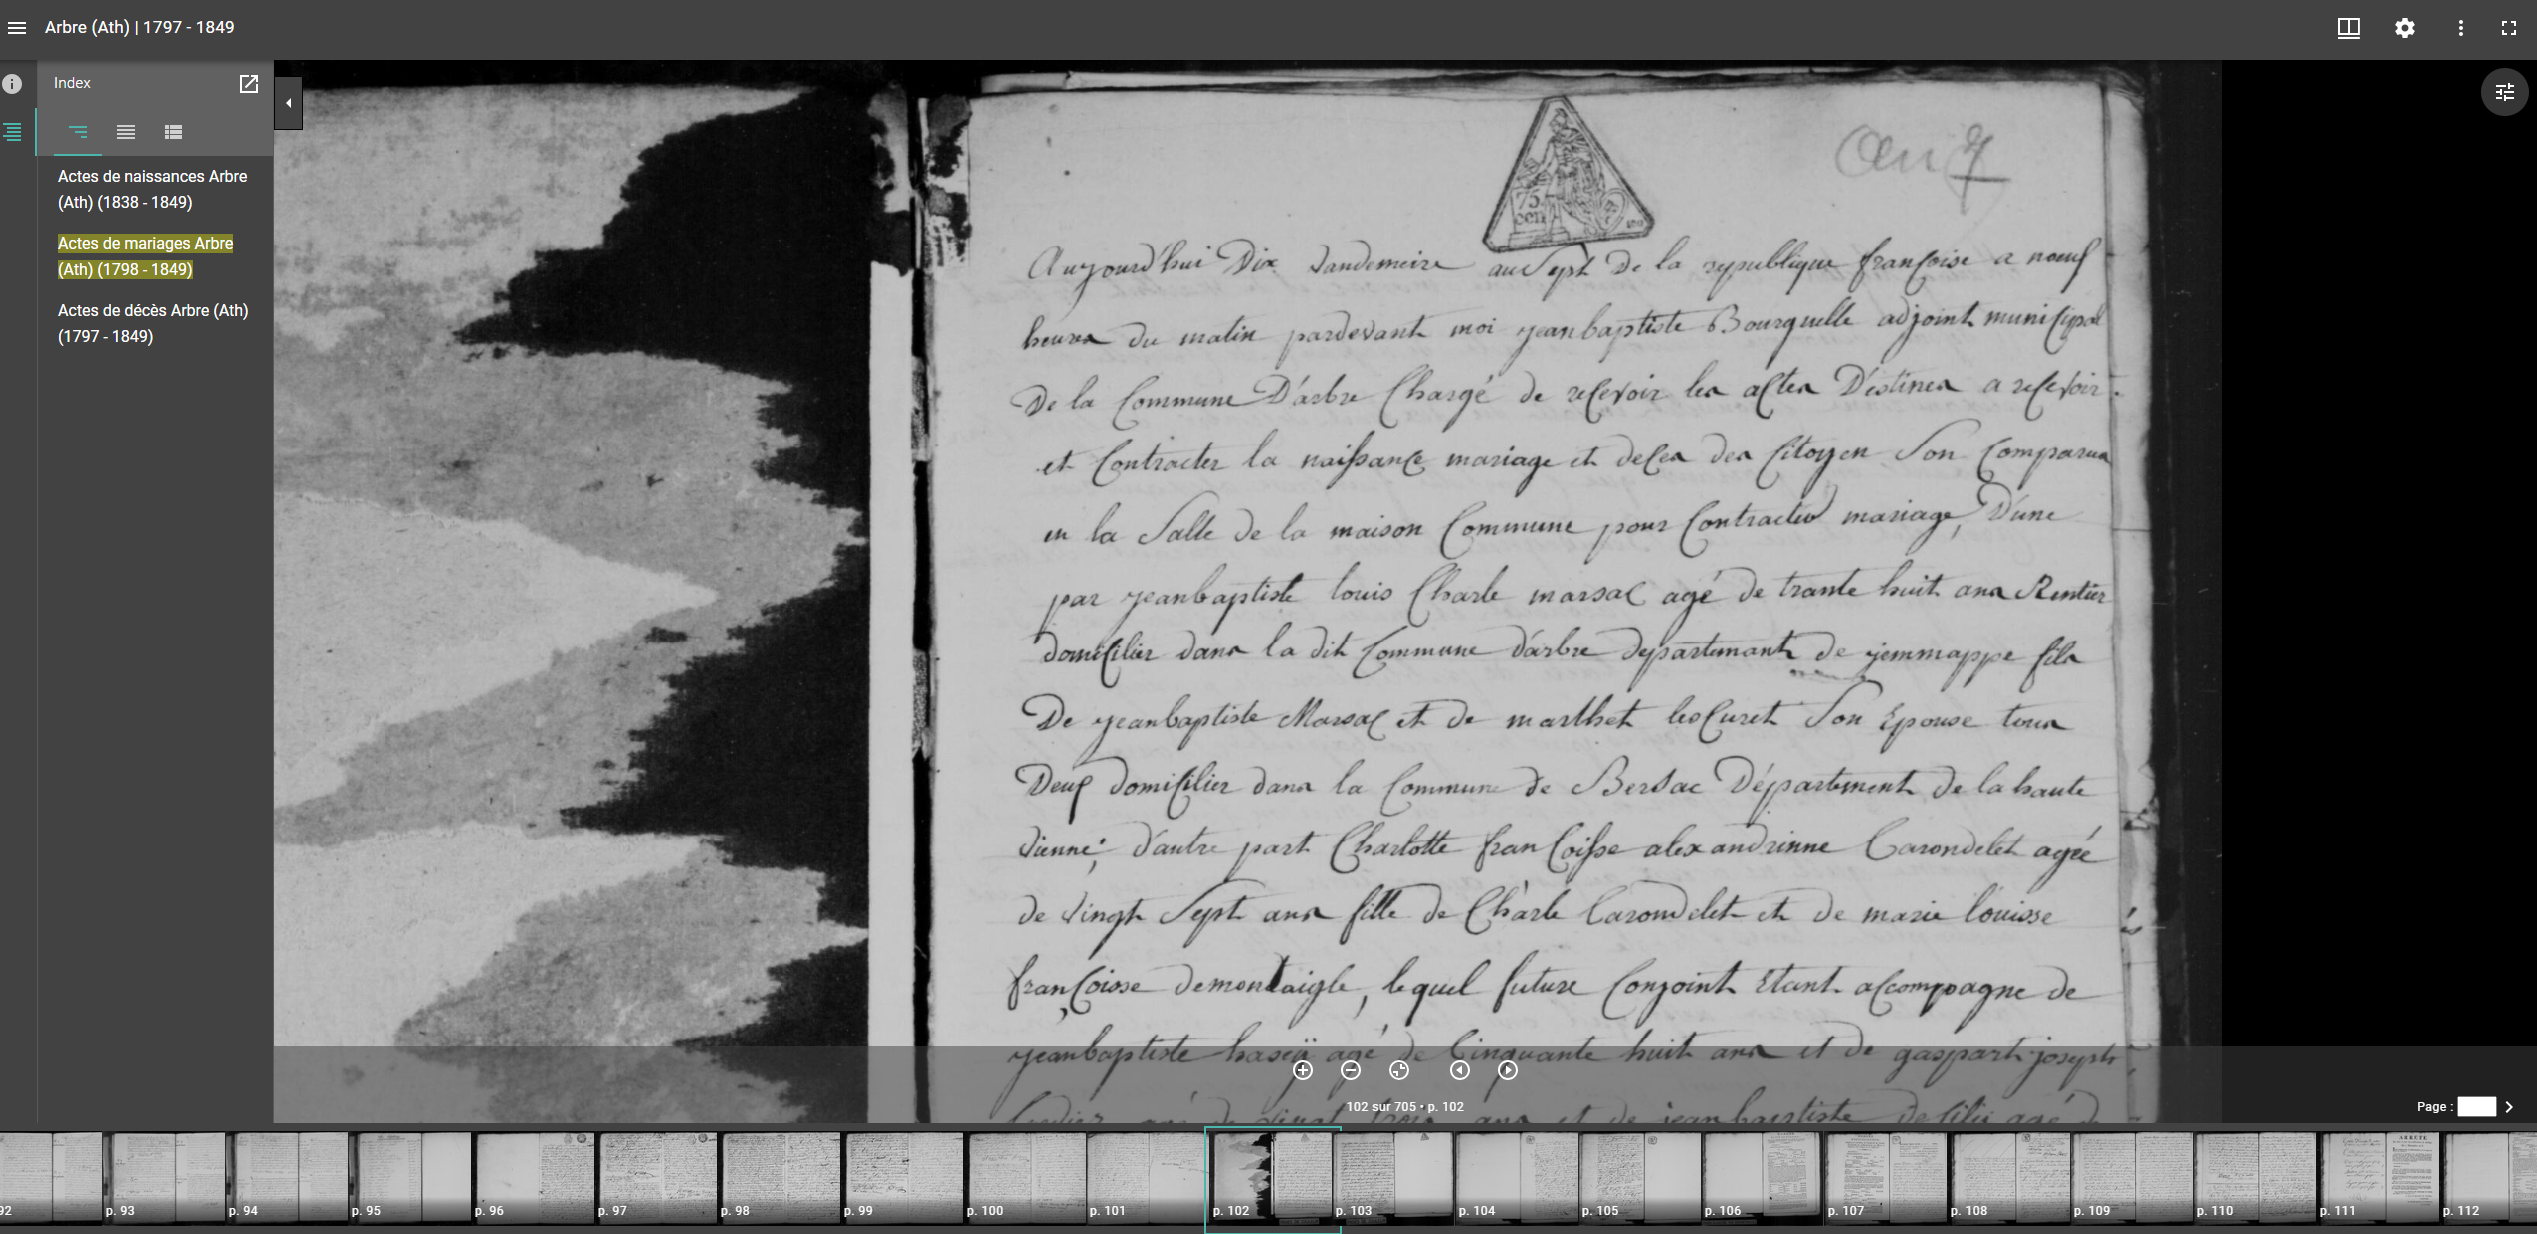 Arbre (Ath) | 1797 - 1849
Index
Actes de naissances Arbre
(Ath) (1838 - 1849)
Actes de mariages Arbre
(Ath) (1798 - 1849)
Actes de décès Arbre (Ath)
(1797 - 1849)
75
cen
an 7
Aujourd'hui Dix Vandemeire an Sept De la republique françoise a neuf
heures du matin pardevant moi jeanbaptiste Bourguelle adjoint municipal
De la Commune D'arbre Chargé de recevoir les actes D'estines a recevoir
et Contracter la naissance mariage et deces des Citoyen Son Comparus
en la Salle de la maison Commune pour Contracter mariage, D'une
par jeanbaptiste louis Charle marsac agé de trante huit ans Rentier
domicilier dans la dit Commune d'arbre departemant de jemmappe fils
De jeanbaptiste Marsac et de marthet lescuret Son Epouse tous
Deux domicilier dans la Commune de Bersac Département de la haute
Vienne; d'autre part Charlotte françoisse alexandrinne Carondelet agée
de Vingt Sept ans fille de Charle Carondelet et de marie louisse
françoisse demontaigle, lequel future Conjoint Etant accompagne de
jeanbaptiste agé de Cinquante huit ans et de gaspart joseph
agé de vingt trois ans et de jeanbaptiste agé
102 sur 705 • p. 102
Page :
92
p. 93
p. 94
p. 95
p. 96
p. 97
p. 98
p. 99
p. 100
p. 101
p. 102
p. 103
p. 104
p. 105
p. 106
p. 107
p. 108
p. 109
p. 110
p. 111
p. 112